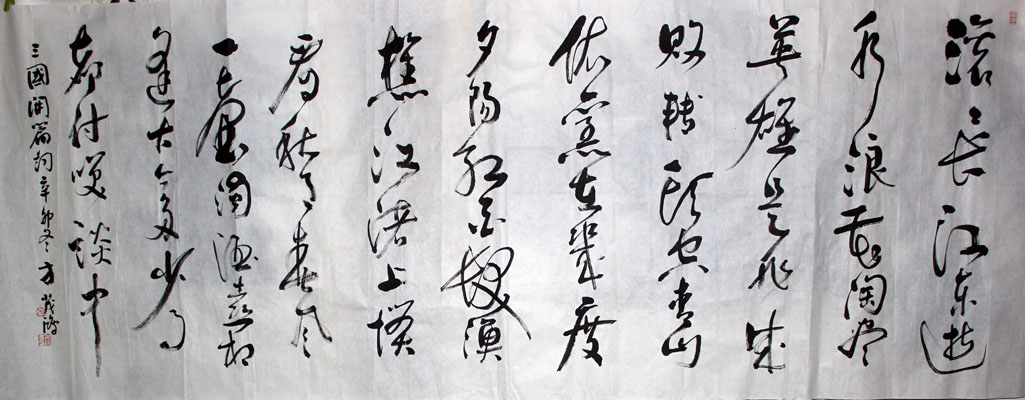 滚〻长江东逝
水浪花淘尽
英雄是非成
败转头空青山
依舊在幾度
夕阳红白发渔
樵江渚上惯
看秋月春风
一壶浊酒喜相
逢古今多少事
都付笑谈中
三國開篇詞辛卯冬方茂鴻